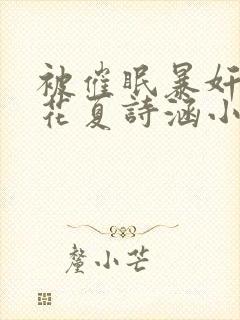 被催眠暴奸
花夏詩涵小
釐小芒